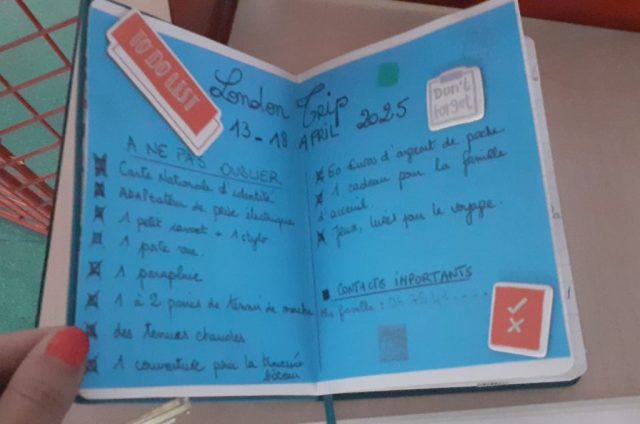 TO DO LIST
London Trip
13 - 18 APRIL 2025
Don't forget
A NE PAS OUBLIER
Carte Nationale d'identité
Adaptateur de prise électrique
1 petit carnet + 1 stylo
1 porte vue.
1 parapluie
1 à 2 paires de tennis de marche
des tenues chaudes
1 couverture pour la traversée
bateau
60 euros d'argent de poche.
1 cadeau pour la famille
d'accueil.
Jeux, livres pour le voyage.
CONTACTS IMPORTANTS
famille :